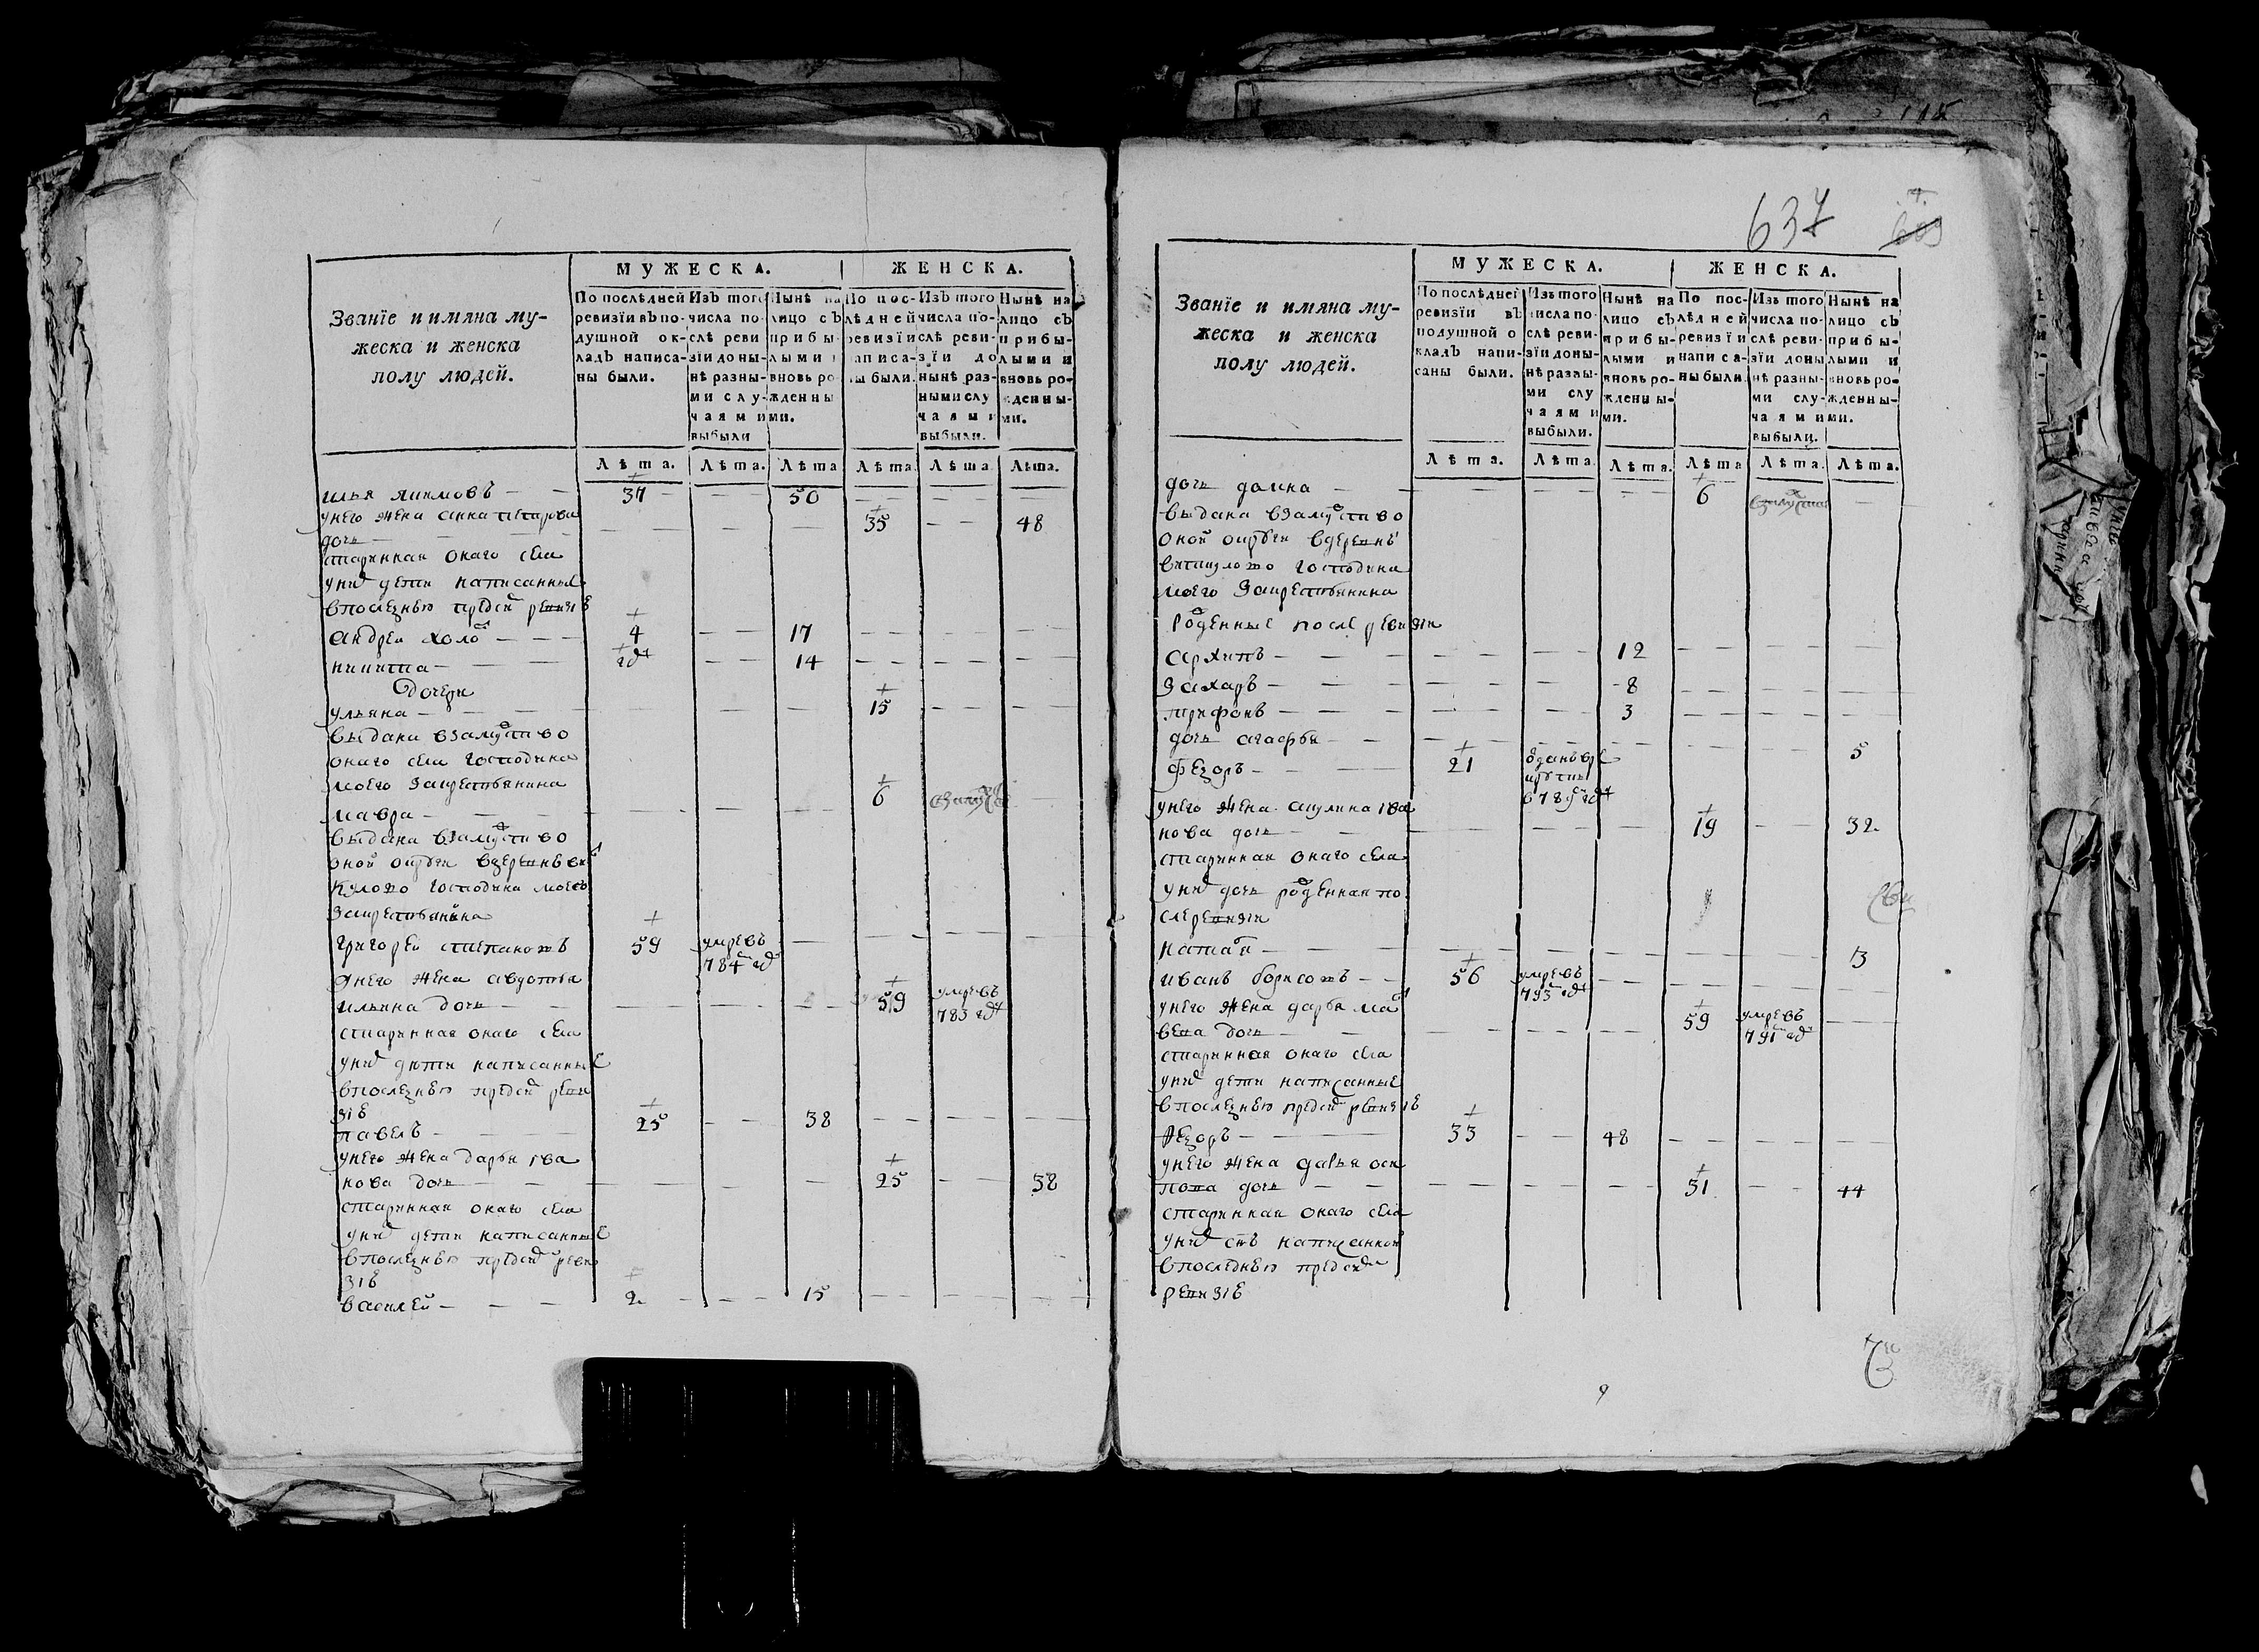 637
МУЖЕСКА. ЖЕНСКА.
Званїе и имяна му-
жеска и женска
полу людей.
По послѣдней ревизїи въ по-душной ок-ладъ написа-ны были.
Изъ того числа по-слѣ реви-зїи доны-нѣ разны-ми слу-чаями выбыли
Нынѣ на лицо съ прибы-лыми и вновь ро-жденны-ми.
По пос-лѣдней ревизїи написа-ны были.
Изъ того числа по-слѣ реви-зїи до нынѣ раз-ными слу чаями выбыли.
Нынѣ на лицо съ прибы-лыми и вновь ро-жденны-ми.
Лѣта. Лѣта. Лѣта Лѣта Лѣта. Лѣта.
илья якимовъ 37 50
унего жена анна петрова
дочь 35 48
старинная онаго села
уних дети написанные
впоследнею пред сим ревизiе
андреи 4 17
никита 14
Дочери
ульяна 15
выдана взамуство
онаго села господина
моего закрестьянина
мавра 6
выдана взамуство
оной округи вдеревню ви
кулово господина моего
закрестьянина
григорей степановъ 59 умре въ 784м год
унего жена авдотья
ильина дочь 59 умре въ 783 год
старинная онаго села
уних дети написанные
впоследнею пред сим реви
зiе
павелъ 25 38
унего жена дарья iва
нова дочь 25 38
старинная онаго села
уних дети написанные
впоследнею пред сим реви
зiе
василей 2 15
МУЖЕСКА. ЖЕНСКА.
Званїе и имяна му-
жеска и женска
полу людей.
По послѣдней ревизїи въ подушной о кладъ напи-саны были.
Изъ того числа по-слѣ реви-зїи доны-нѣ разны-ми слу чаями выбыли.
Нынѣ на лицо съ прибы-лыми и вновь ро-жденны-ми.
По пос-лѣдней ревизїи написа-ны были
Изъ того числа по-слѣ реви-зїи доны нѣ разны-ми слу-чаями выбыли.
Нынѣ на лицо съ прибы-лыми и вновь ро-жденны-ми.
Лѣта. Лѣта Лѣта. Лѣта Лѣта. Лѣта.
дочь домна 6
выдана взамуство
оной округи вдеревню
викулово господина
моего закрестьянина
рожденные после ревизiи
архипъ 12
захаръ 8
трифонъ 3
дочь агафья 5
федоръ 21 отданъ в рекруты в 789м год
унего жена акулина iва
нова дочь 19 32
старинная онаго села
уних дочь рожденная по
сле ревизiи
13
иванъ борисовъ 56 умре въ 793м год
унего жена дарья мат
веева дочь 59 умре въ 791м год
старинная онаго села
уних дети написанные
впоследнею пред сим ревизiе
федоръ 33 48
унего жена дарья оси
пова дочь 31 44
старинная онаго села
уних сынъ написанной
впоследнею пред сим
ревизiе
9